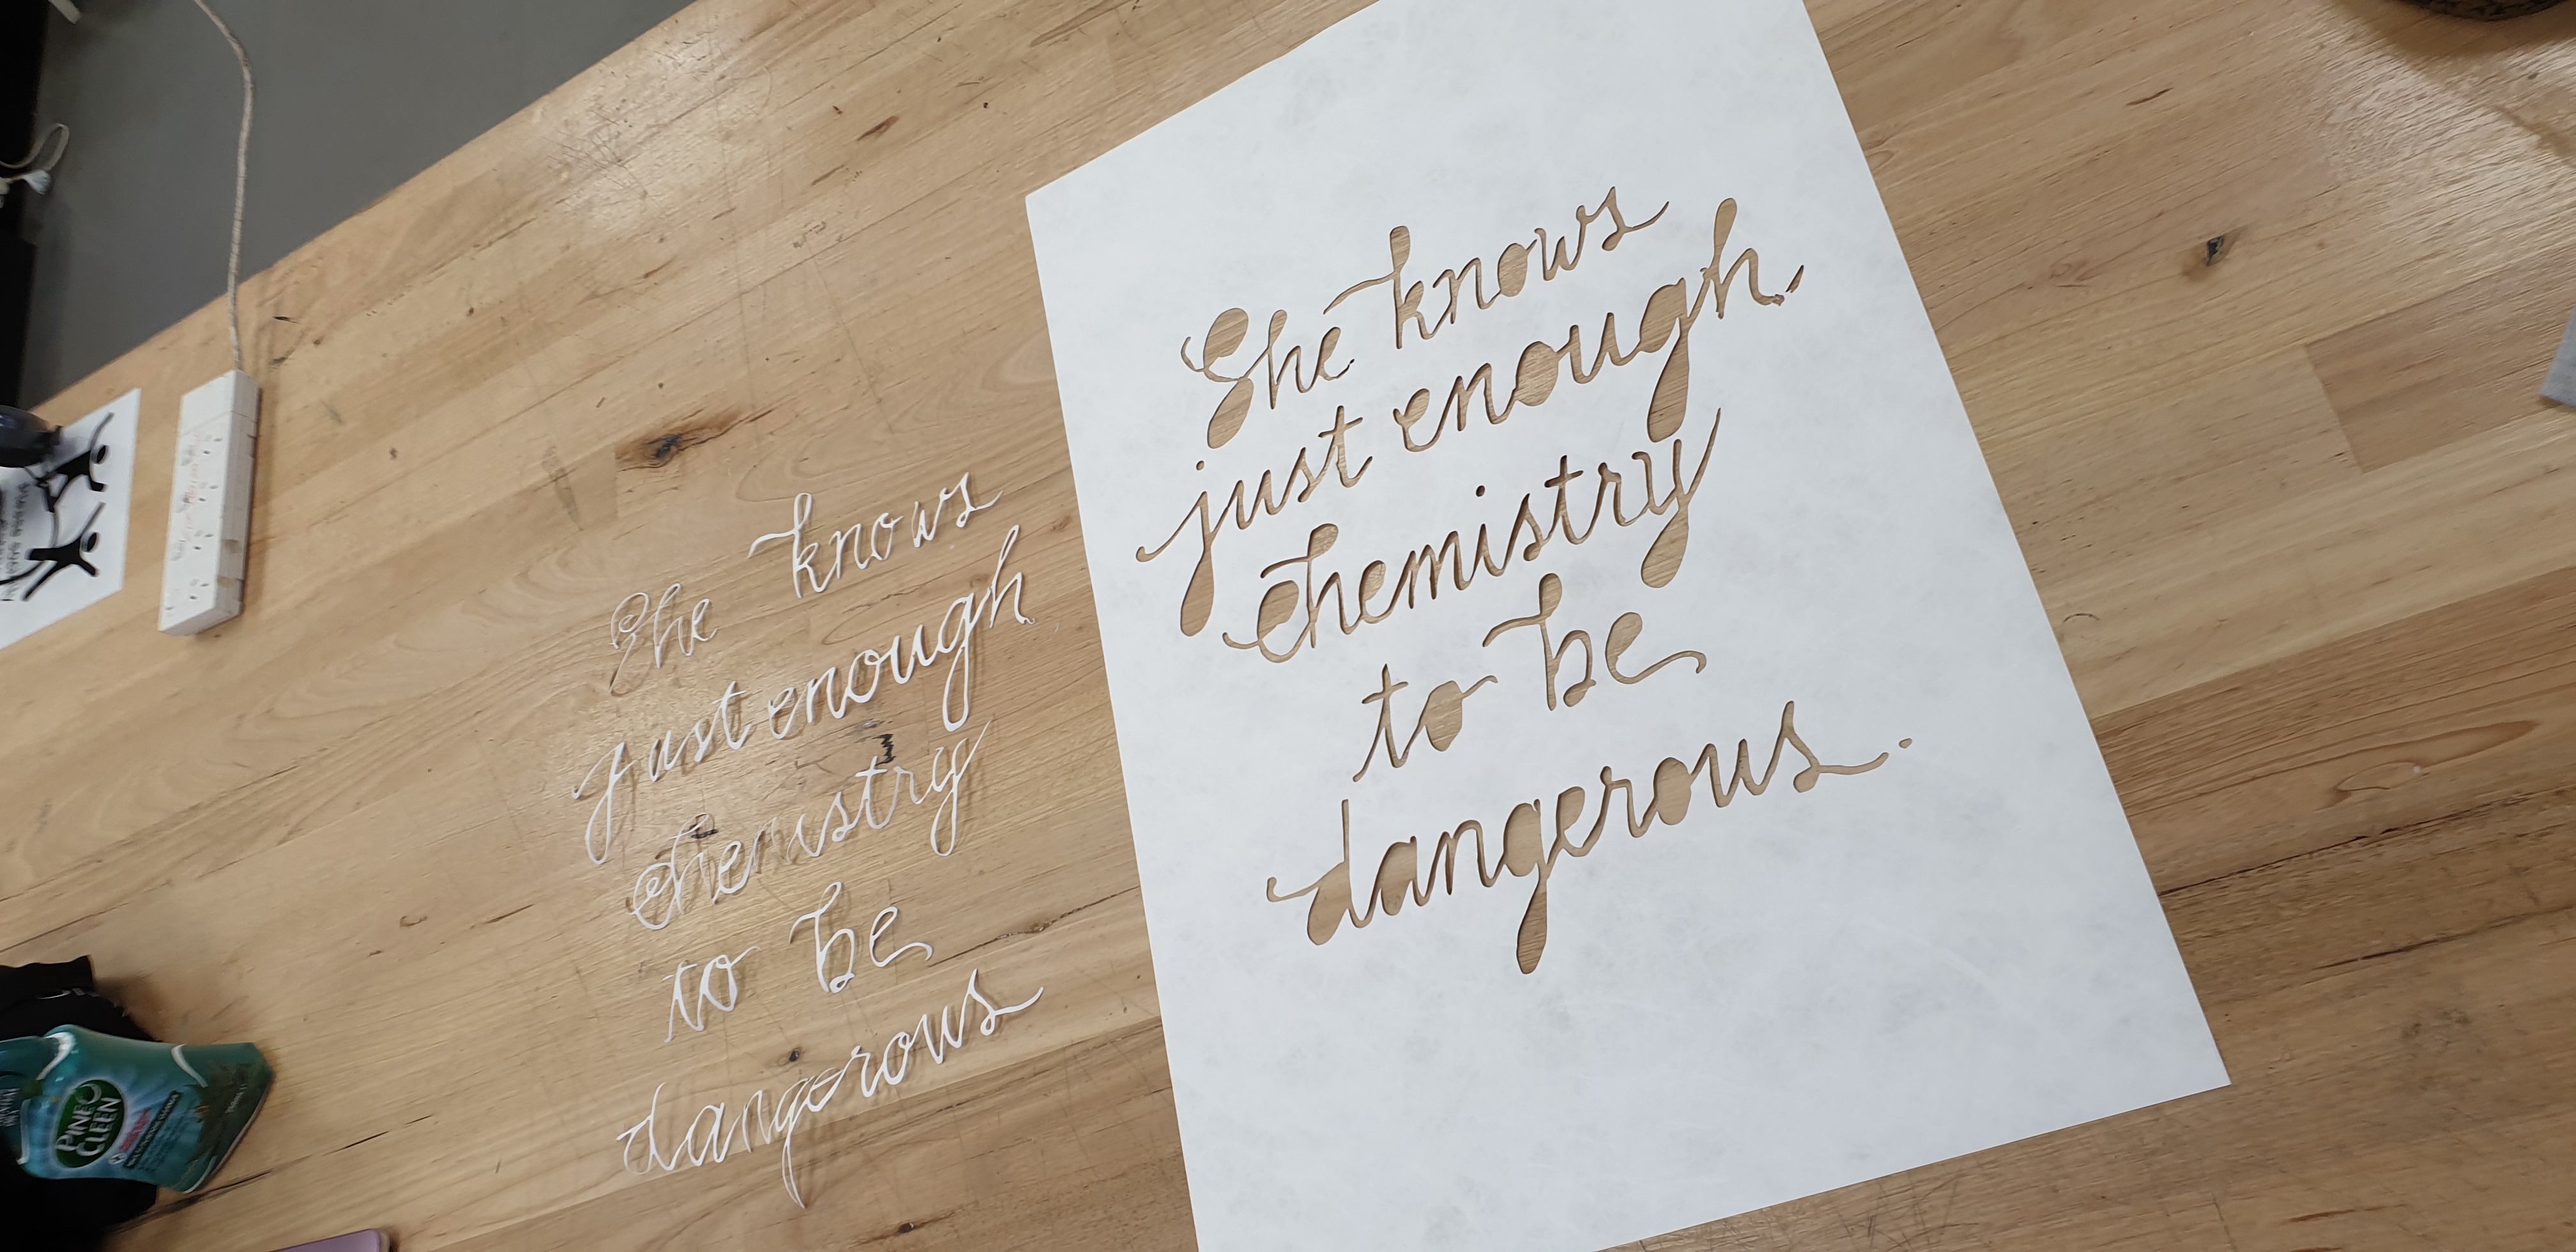 She knows
just enough
chemistry
to be
dangerous
She knows
just enough
chemistry
to be
dangerous.
PINE
O
CLEEN